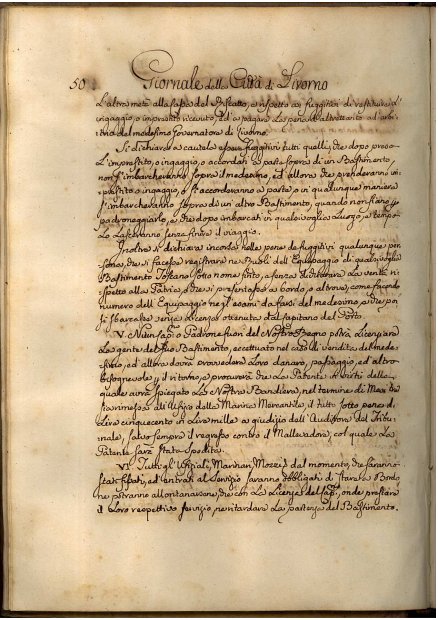 50 Giornale della Città di Livorno
L'altra metà alla Cassa del Riscatto, e rispetto ai fuggitivi di restituire l'
ingaggio o imprestito ricevuto ed a pagare la pena al
del medesimo Governatore di Livorno.
Si dichiara a cautela essere fuggitivi tutti quelli, che dopo preso
l'imprestito, o ingaggio, o accordati a parte sopra di un Bastimento,
non s'imbarcheranno sopra il medesimo, ed allora che prenderanno im-
prestito o ingaggio, o si accorderanno a parte, o in qualunque maniera
s'imbarcheranno sopra di un altro Bastimento, quando non siano
padroneggiarlo, e che dopo imbarcati in qualsivoglia Luogo, e tempo
lo lasceranno senza finire il viaggio.
Inoltre si dichiara incorsa nelle pene de fuggitivi qualunque per-
sona, che si facesse registrare ne Ruoli dell'Equipaggio di qualsivoglia
Bastimento Toscano sotto nome finto, o senza dichiarare la verità ri-
spetto alla Patria, e che si presentasse a bordo, o altrove, come facendo
numero dell'Equipaggio negl'esami da farsi del medesimo, e che poi
si sbarcasse senza licenza ottenuta dal Capitano del Porto.
V. Niun Cap.o o Padrone fuori del Nostro Regno potrà Licenziare
la gente del suo Bastimento, eccettuato nel caso di vendita del mede-
simo, ed allora dovrà provvedere loro danaro, passaggio, ed altro
bisognevole p. il ritorno, e procurerà che la Patente in virtù della
quale avrà spiegato la Nostra Bandiera, nel termine di Mesi tre
sia rimessa all'Ufizio della Marina Mercantile, il tutto sotto pena di
lire cinquecento in Lire mille a giudizio dell'Auditore del Tribu-
nale, salvo sempre il regresso contro il Mallevadore, col quale La
Patente sarà stata spedita.
VI. Tutti gl'Ufiziali, Marinari, Mozzi, dal momento, che saranno
stati fissati, ed entrati al Servizio saranno obbligati di stare a Bordo
ne potranno allontanarsene, che con la Licenza del Cap.o, onde prestare
il loro respettivo servizio, ne ritardare la partenza del Bastimento.